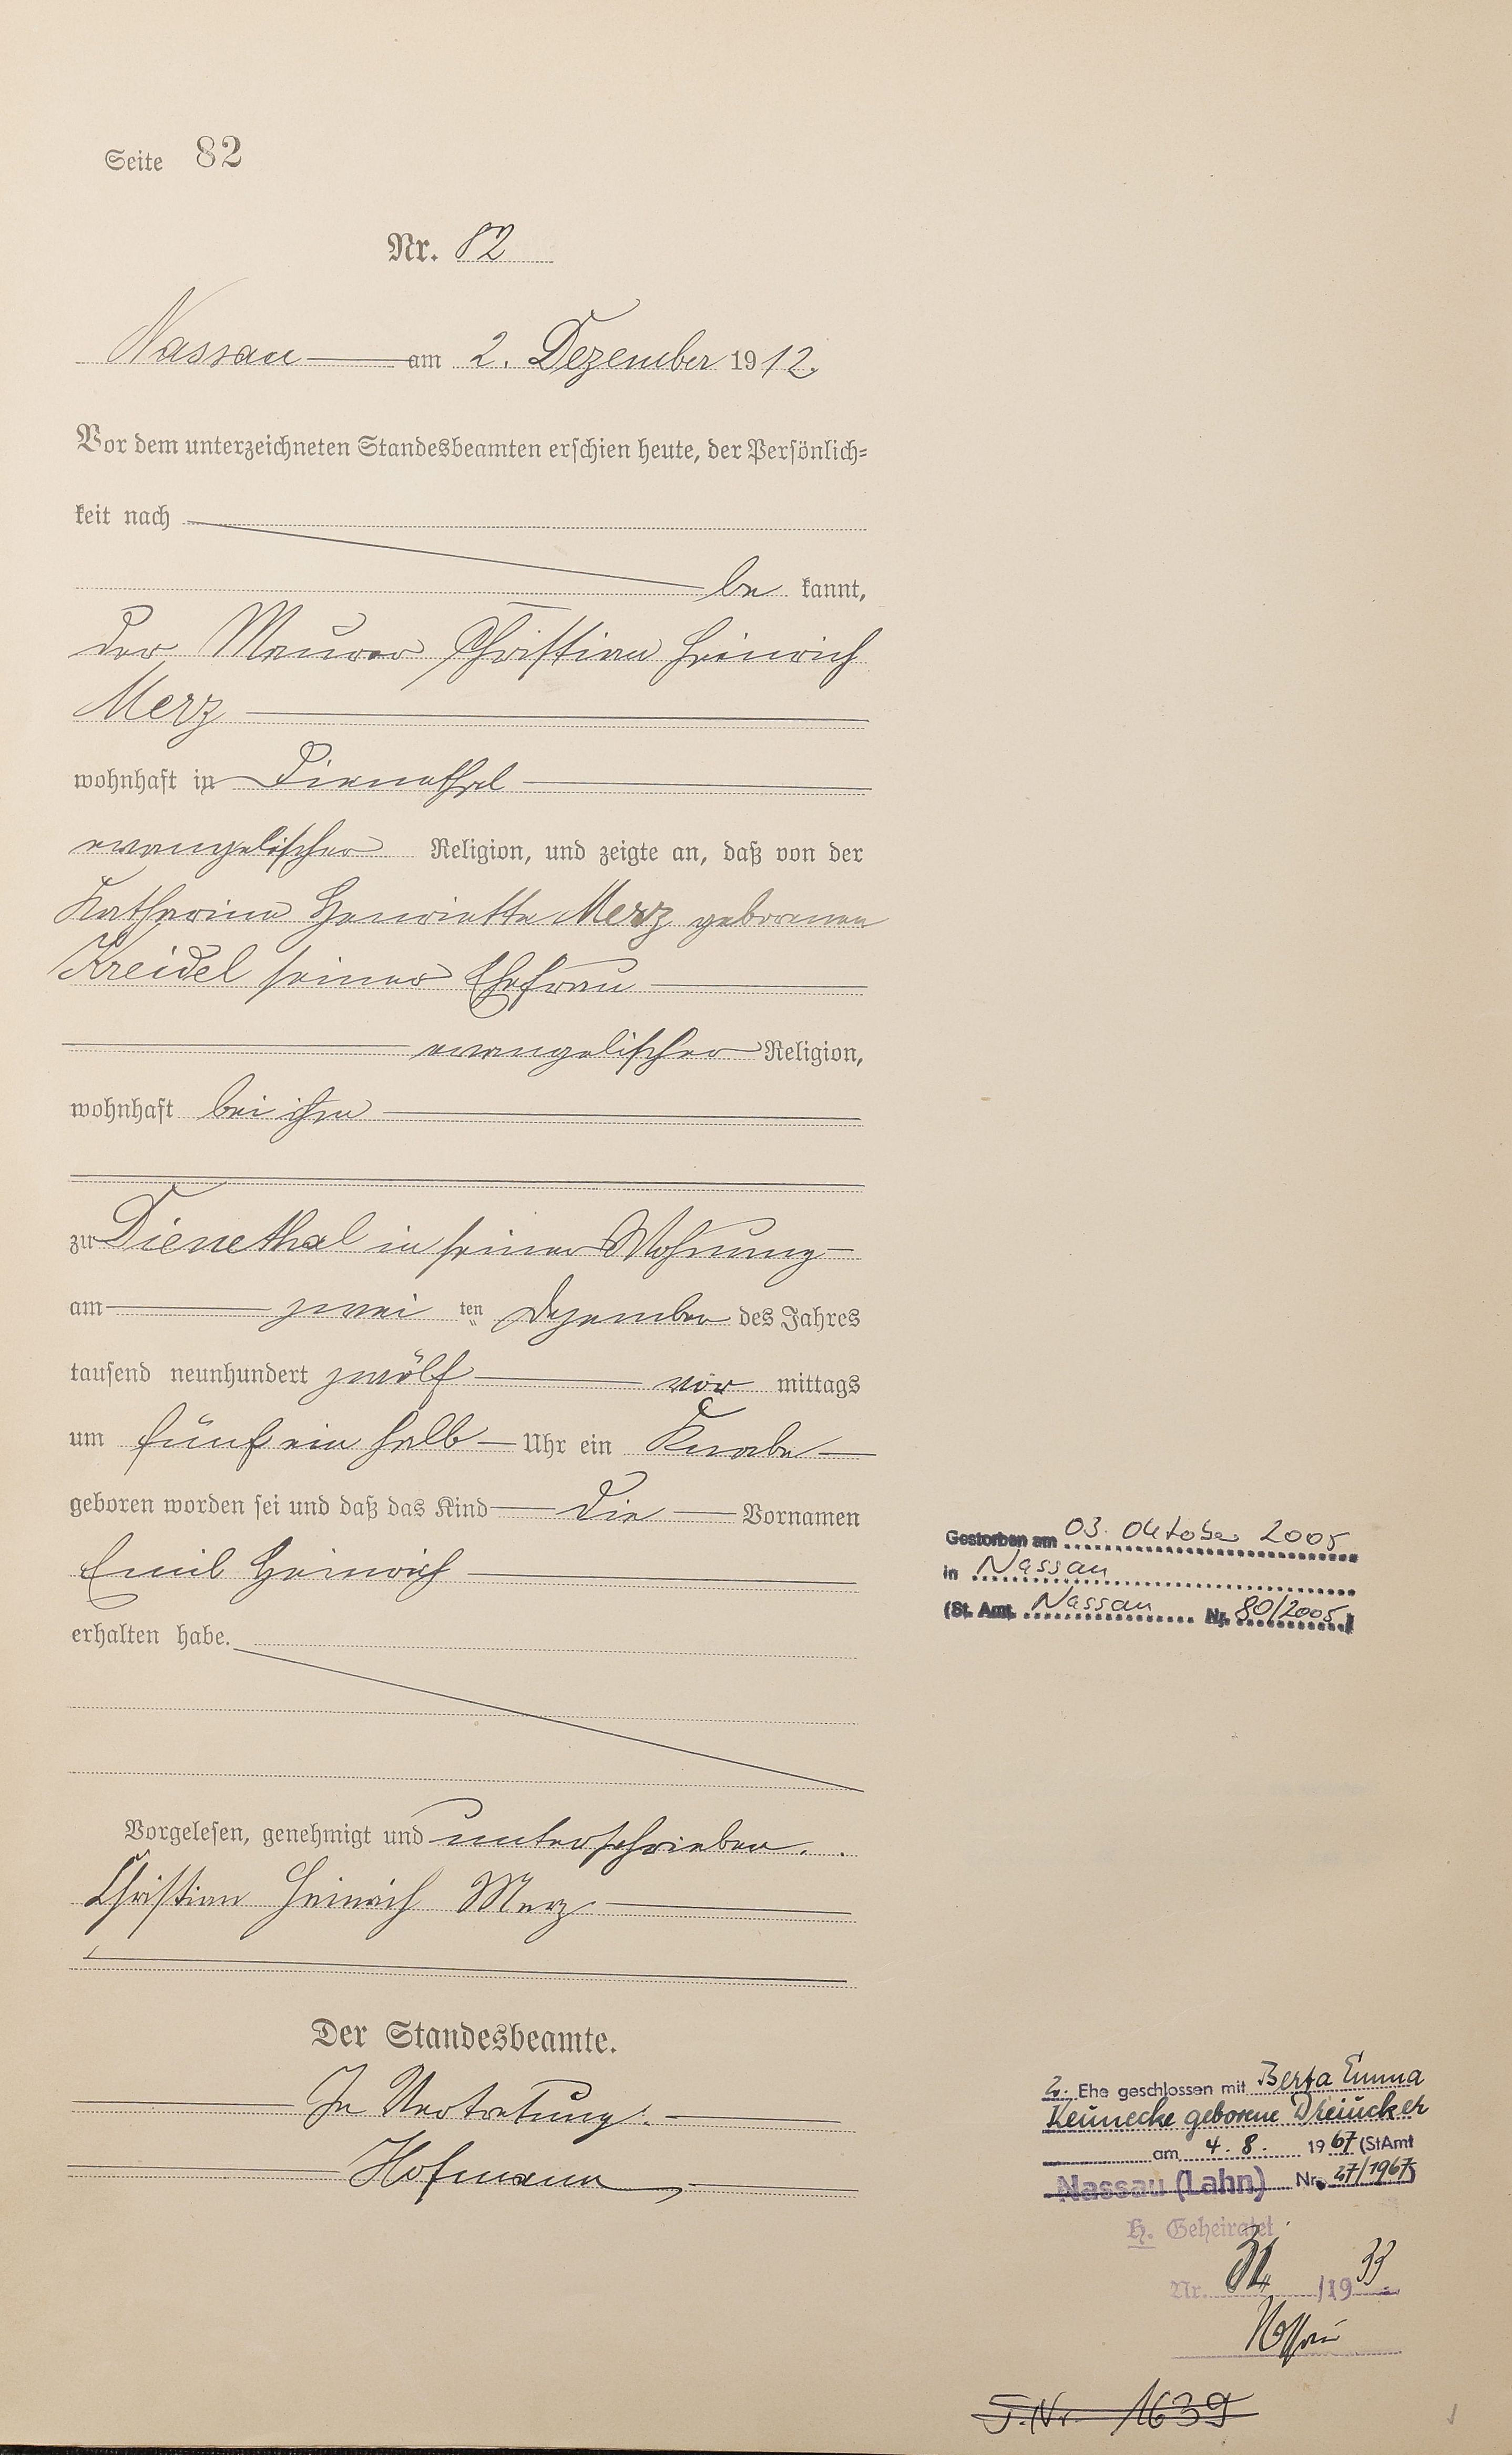 Seite 82
Nr. 82
Nassau am 2. Dezember 1912.
Vor dem unterzeichneten Standesbeamten erschien heute, der Persönlich=
keit nach
be kannt,
der Maurer Christian Heinrich
Merz
wohnhaft in Dienethal
evangelischer Religion, und zeigte an, daß von der
Katharine Henriette Merz geborenen
Kreidel seiner Ehefrau
evangelischer Religion,
wohnhaft bei ihm
zu Dienethal in seiner Wohnung
am zwei ten Dezember des Jahres
tausend neunhundert zwölf vor mittags
um fünf ein halb Uhr ein Knabe
geboren worden sei und daß das Kind die Vornamen
Emil Heinrich
erhalten habe.
Vorgelesen, genehmigt und unterschrieben.
Christian Heinrich Merz
Der Standesbeamte.
In Vertretung:
Hofmann
Gestorben am 03. Oktober 2005
in Nassau
(St. Amt. Nassau Nr. 80/2005)
2. Ehe geschlossen mit Berta Emma
Keunecke geborene Dreiucker
am 4. 8. 1967 (StAmt
Nassau (Lahn) Nr. 27/1967)
H. Geheiratet
Nr. /1933
Nassau
J. Nr. 1639